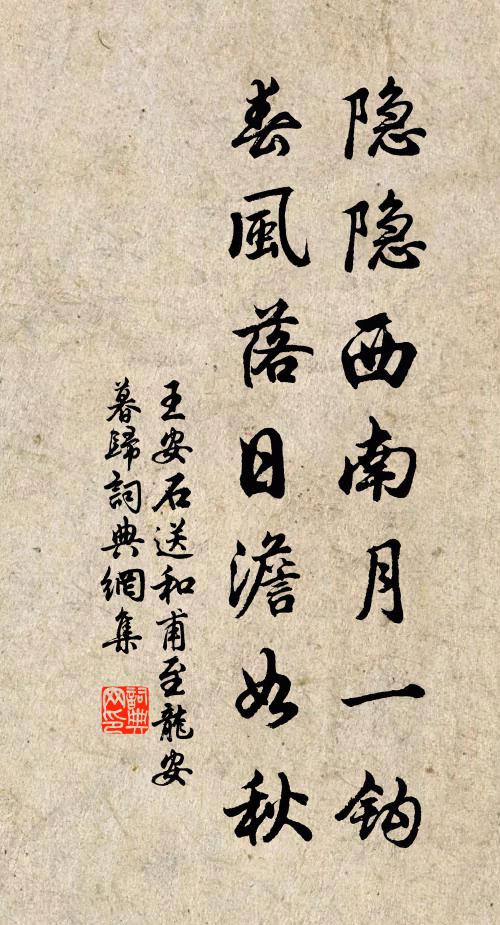 隐隐西南月一钩
春風落日澹如秋
王安石送和甫至龍安
暮歸詞典網集
詞典网印